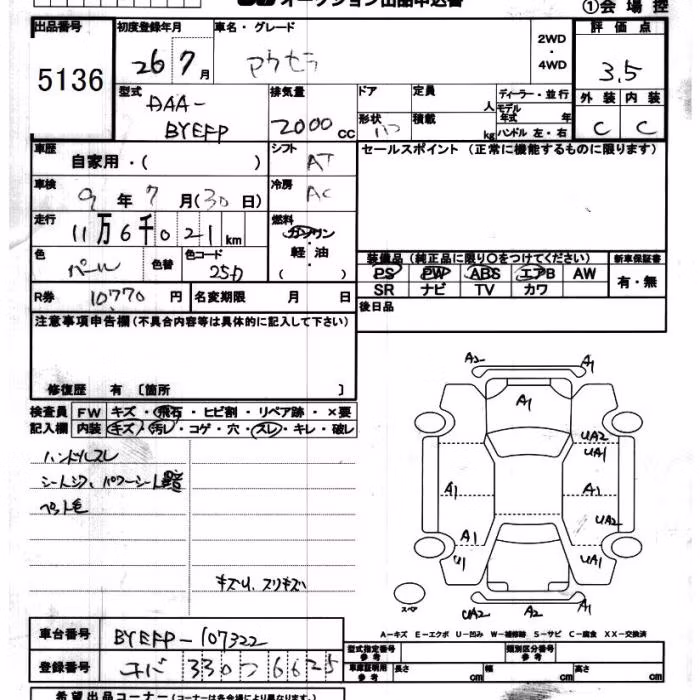 オークション出品申込書
①会場控
出品番号 初度登録年月 車名・グレード 2WD・4WD 評価点
5136 26 7月 アクセラ 3.5
型式 排気量 ドア 定員 人 ディーラー・並行 外装 内装
DAA-BYEFP 2000cc 形状 ハコ 積載 kg モデル年式 年 ハンドル 左・右 C C
車歴 自家用・( ) シフト AT セールスポイント(正常に機能するものに限ります)
車検 9年7月(30日) 冷房 AC
走行 11万6千021km 燃料 ガソリン 軽油 ( )
色 パール 色替 色コード 25D
装備品(純正品に限り○をつけてください) 新車保証書
PS PW ABS エアB AW 有・無
SR ナビ TV カワ
R券 10,770円 名変期限 月 日 後日品
注意事項申告欄(不具合内容等は具体的に記入して下さい)
修復歴 有 〔箇所 〕
検査員 FW キズ・飛石・ヒビ割・リペア跡・×要
記入欄 内装 キズ・汚レ・コゲ・穴・スレ・キレ・破レ
ハンドルスレ
ペット毛
キズ小、スリキズ
A2 A1
A1
UA2
UA1
A1 A1
UA2
A1
U1 UA1
スペア
UA2 A2 A1
A-キズ E-エクボ U-凹み W-補修跡 S-サビ C-腐食 XX-交換済
車台番号 BYEFP-107322
登録番号 330 つ 6625
型式指定番号 参考 類別区分番号 参考
車庫証明用 参考 長さ cm 幅 cm 高さ cm
希望出品コーナー